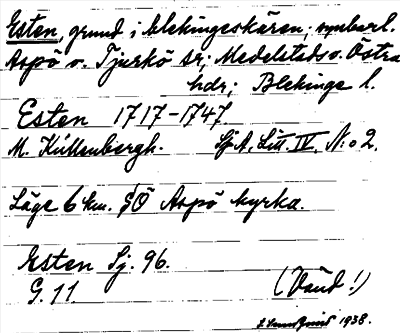 Esten, grund i blekingeskären; synbarl.
Aspö o. Tjurkö sr; Medelstads o. Östra
hdr; Blekinge l.
Esten 1717-1747.
M. Küllenbergh. Sj. A, Litt. IV, N:o 2.
Läge 6 km. SÖ Aspö kyrka.
Esten Sj. 96.
G. 11. (Vänd!)
1938.